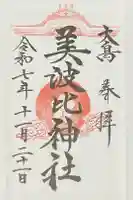 奉拝
大鳥
美波比神社
令和七年十一月二十一日